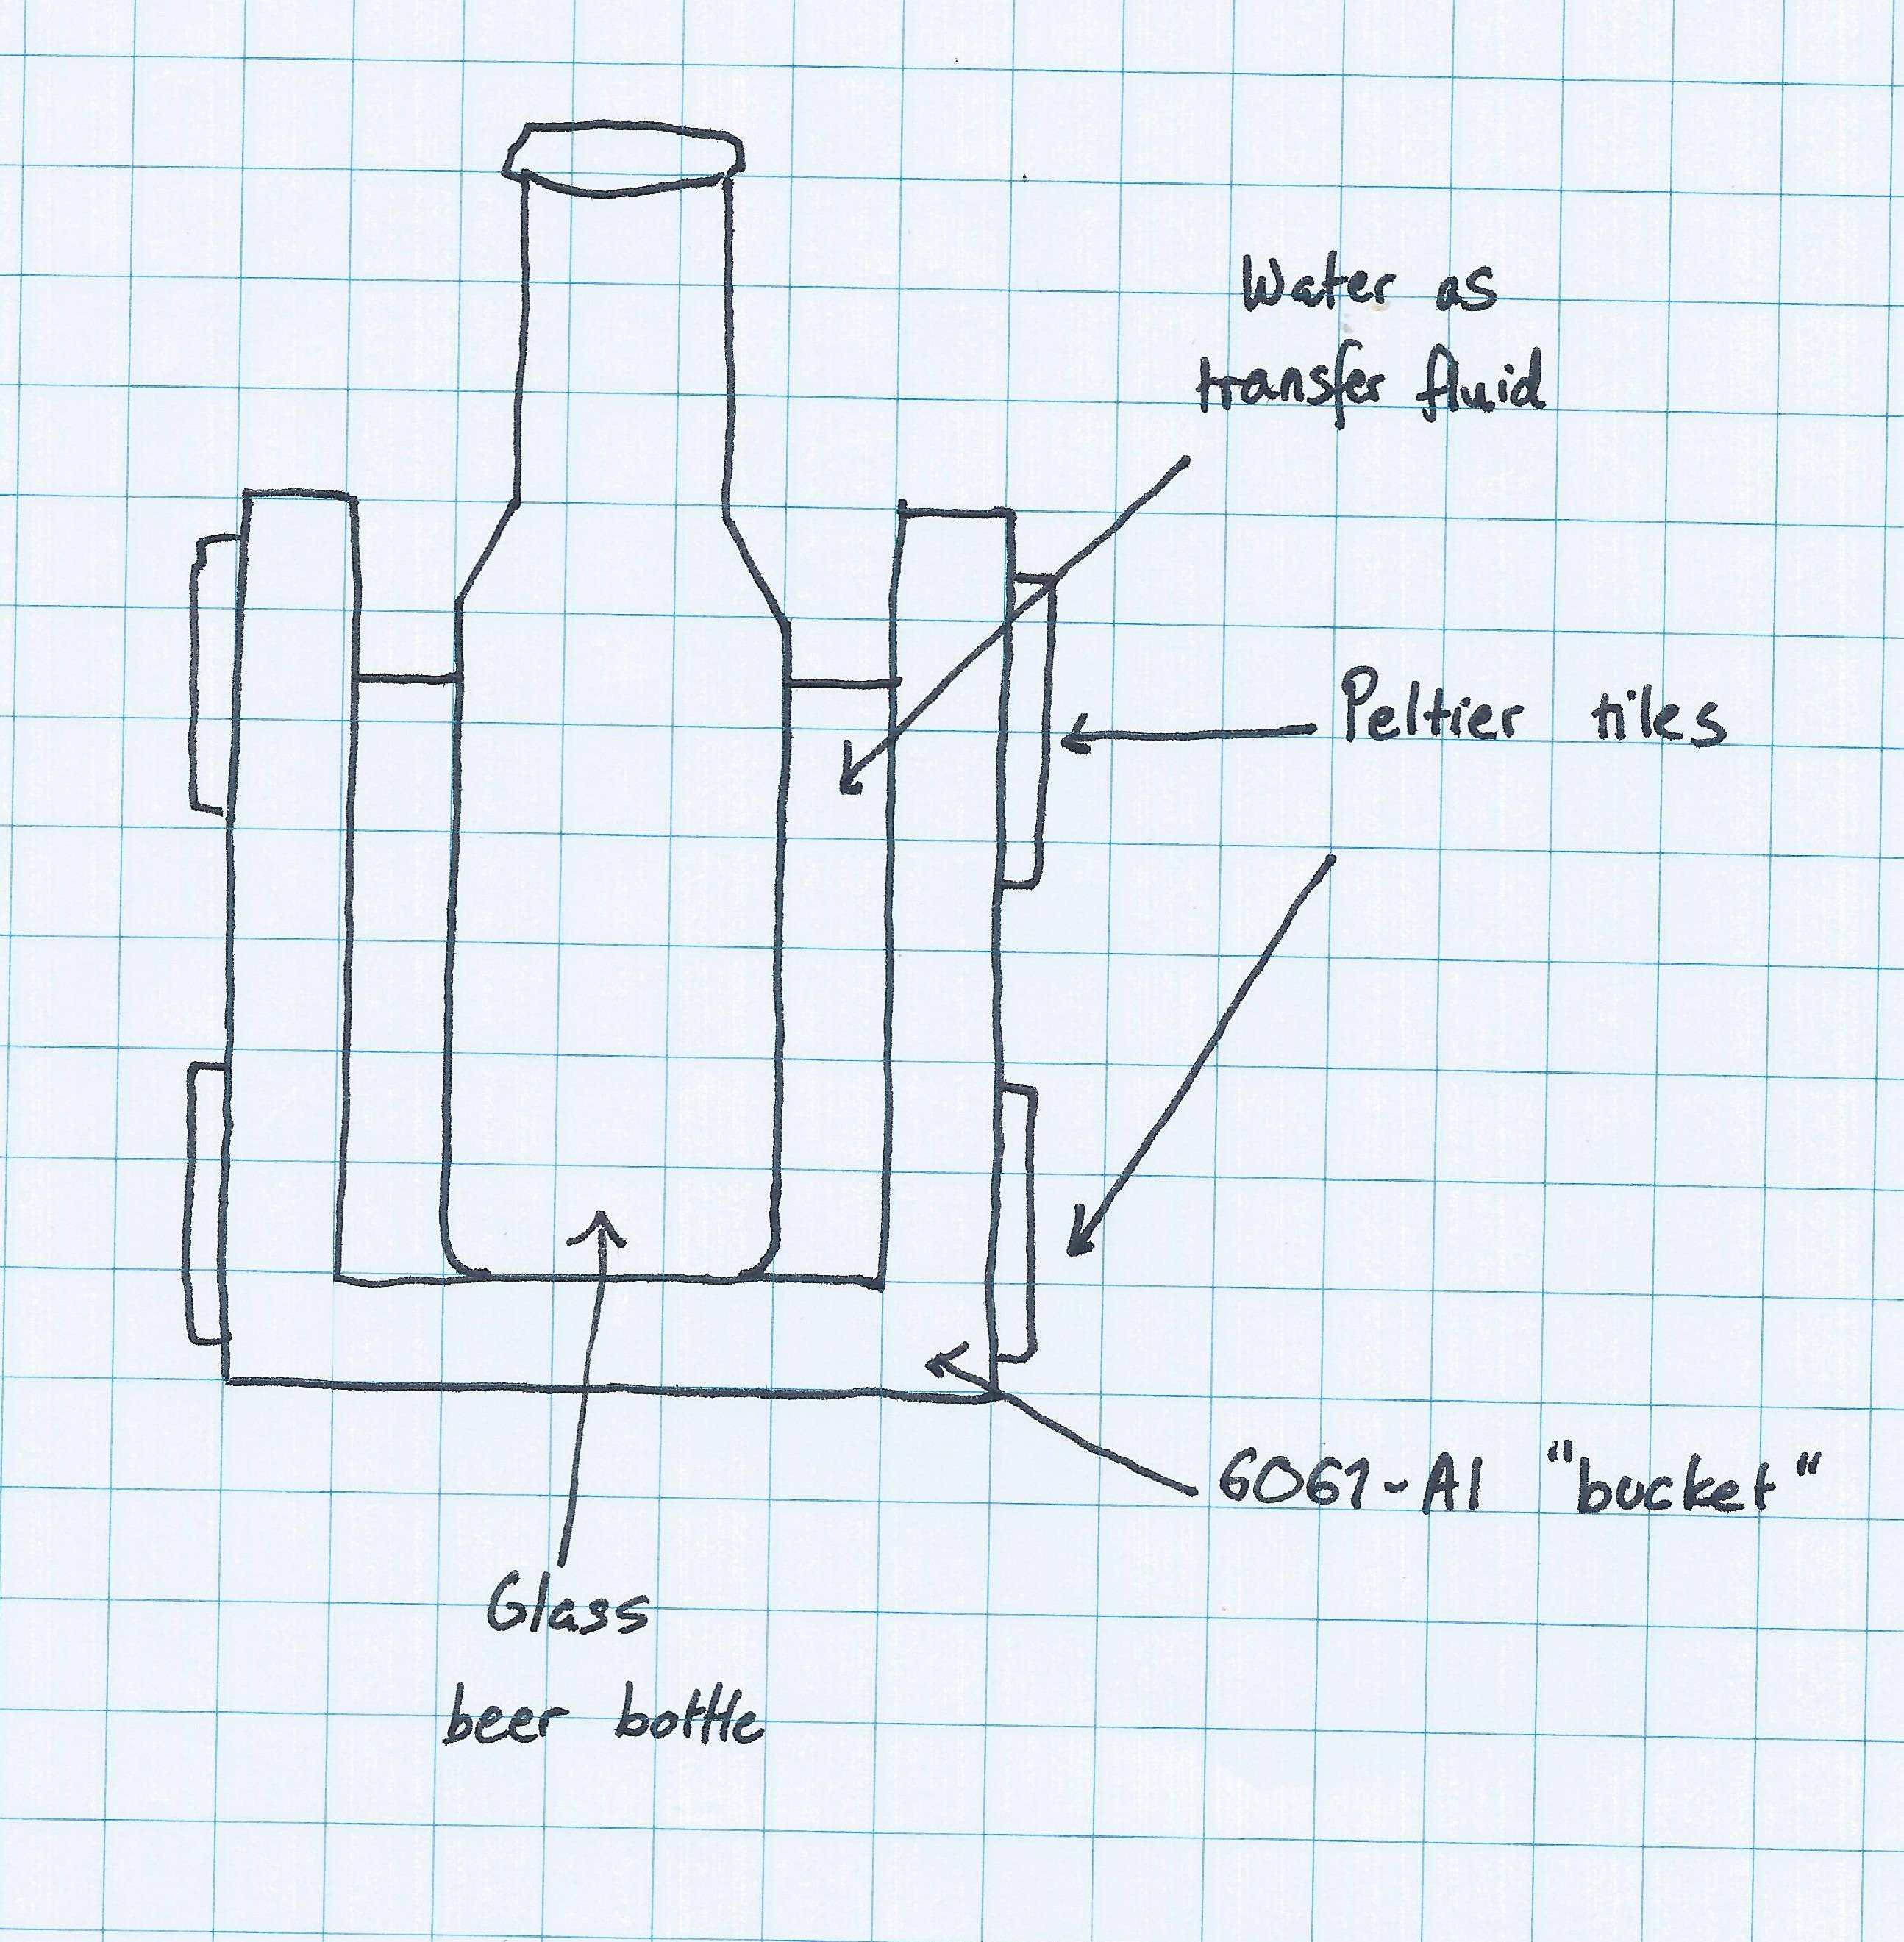 Water as
transfer fluid
Peltier tiles
6061-Al "bucket"
Glass
beer bottle